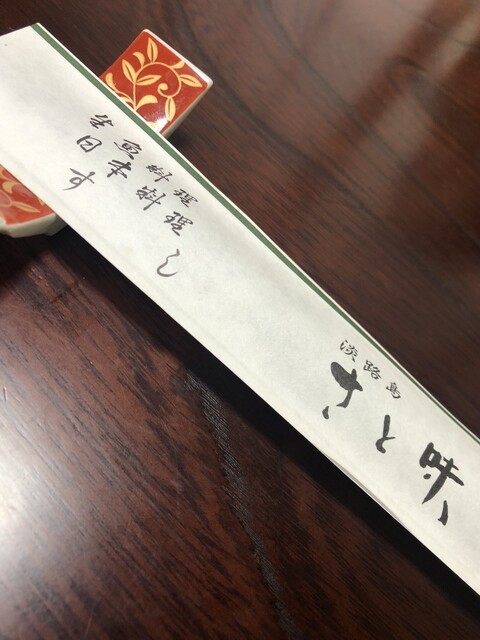 生魚料理
日本料理
すし
淡路島
さと味